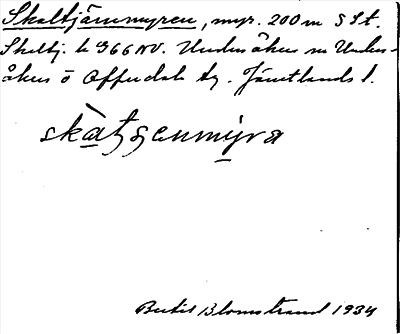 Skaltjärnmyren, myr. 200 m S St.
Skaltj. k 366 NV. Undersåkers sn Unders-
åkers o Offerdals tg. Jämtlands l.
Bertil Blomstrand 1934